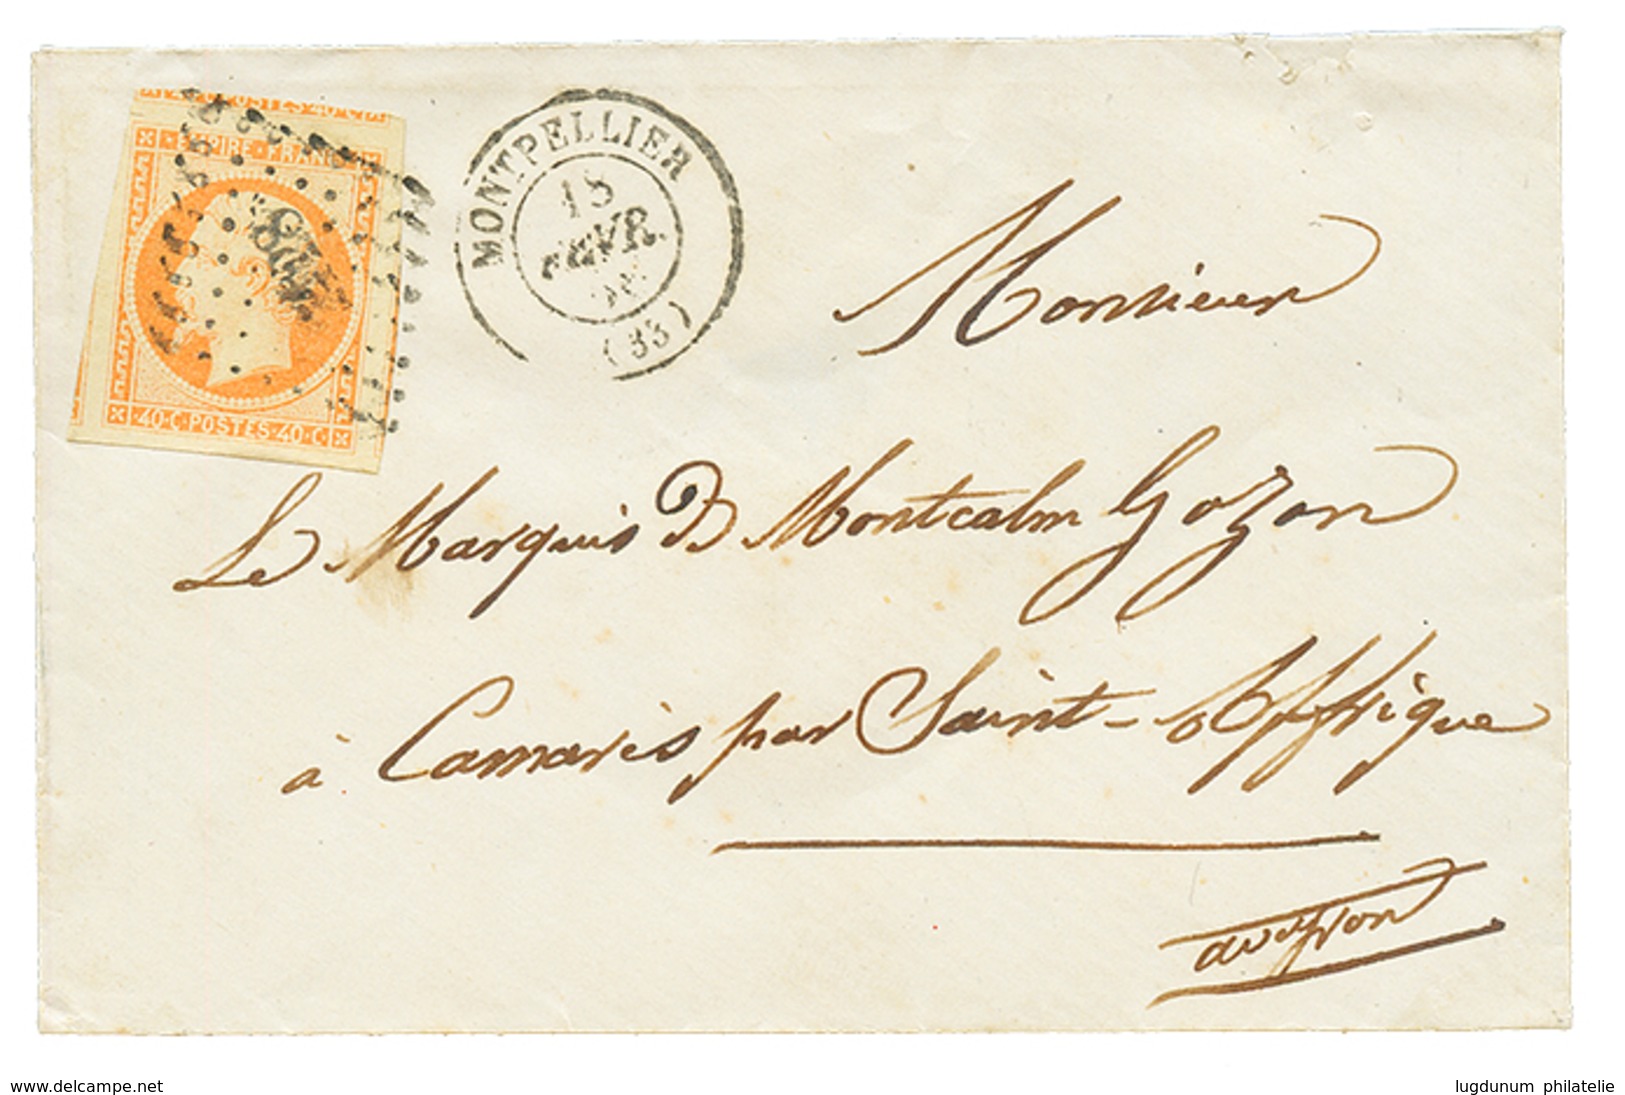 A 40·C·POSTES·40·C
EMPIRE·FRANC
·40·C·POSTES·40·C·
MONTPELLIER
18
FEVR.
(33)
Monsieur
Le Marquis De Montcalm Gozon
à Camarès par Saint-Affrique
aveyron
www.delcampe.net
lugdunum philatelie